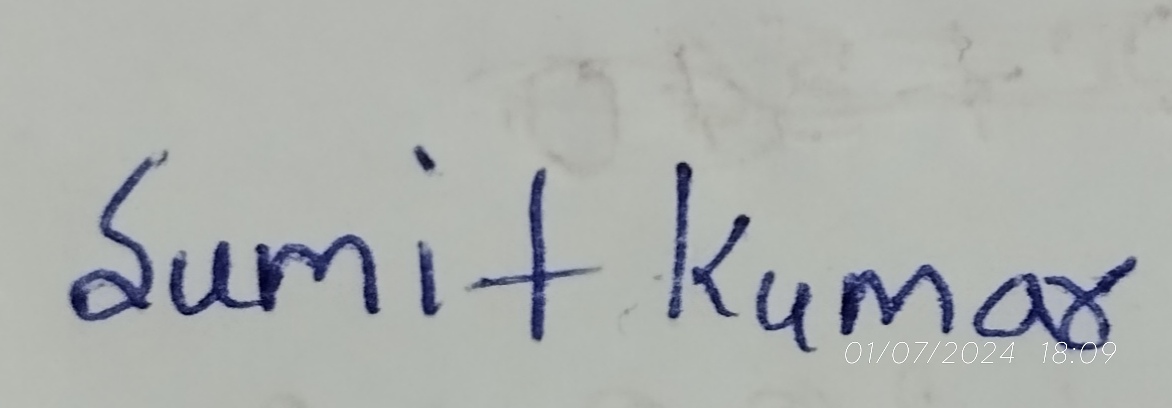 Sumit Kumar
01/07/2024 18:09